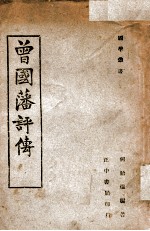 國學叢書
何貽焜編著
正中書局印行
曾國藩評傳